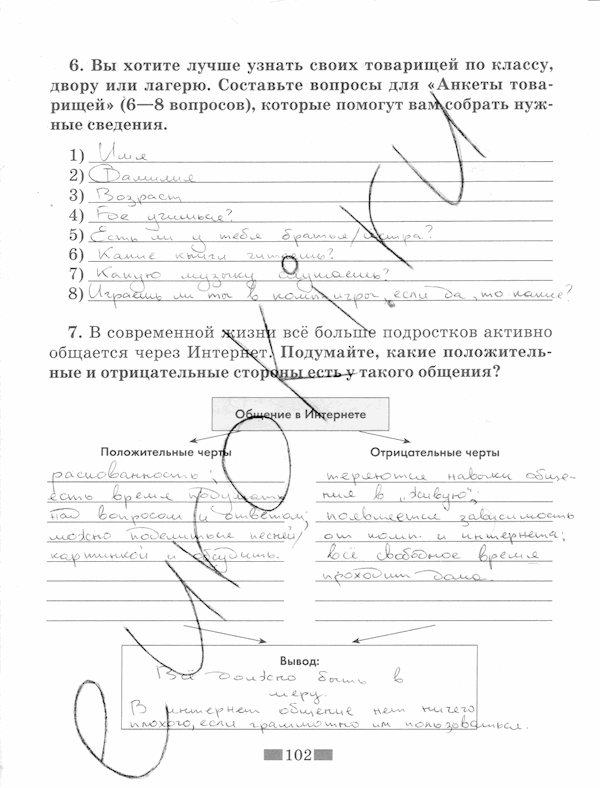 6. Вы хотите лучше узнать своих товарищей по классу,
двору или лагерю. Составьте вопросы для «Анкеты това-
рищей» (6—8 вопросов), которые помогут вам собрать нуж-
ные сведения.
1) Имя
2) Фамилия
3) Возраст
4) Где учишься?
5) Есть ли у тебя братья/сестра?
6) Какие книги читаешь?
7) Какую музыку слушаешь?
8) Играешь ли ты в комп. игры, если да, то какие?
7. В современной жизни всё больше подростков активно
общается через Интернет. Подумайте, какие положитель-
ные и отрицательные стороны есть у такого общения?
Общение в Интернете
Положительные черты
раскованность;
есть время подумать
над вопросом и ответом;
можно поделиться песней/
картинкой и обсудить.
Отрицательные черты
теряются навыки обще-
ния в „живую";
появляется зависимость
от комп. и интернета;
всё свободное время
проходит дома.
Вывод:
Всё должно быть в
меру.
В интернет общение нет ничего
плохого, если грамотно им пользоваться.
102